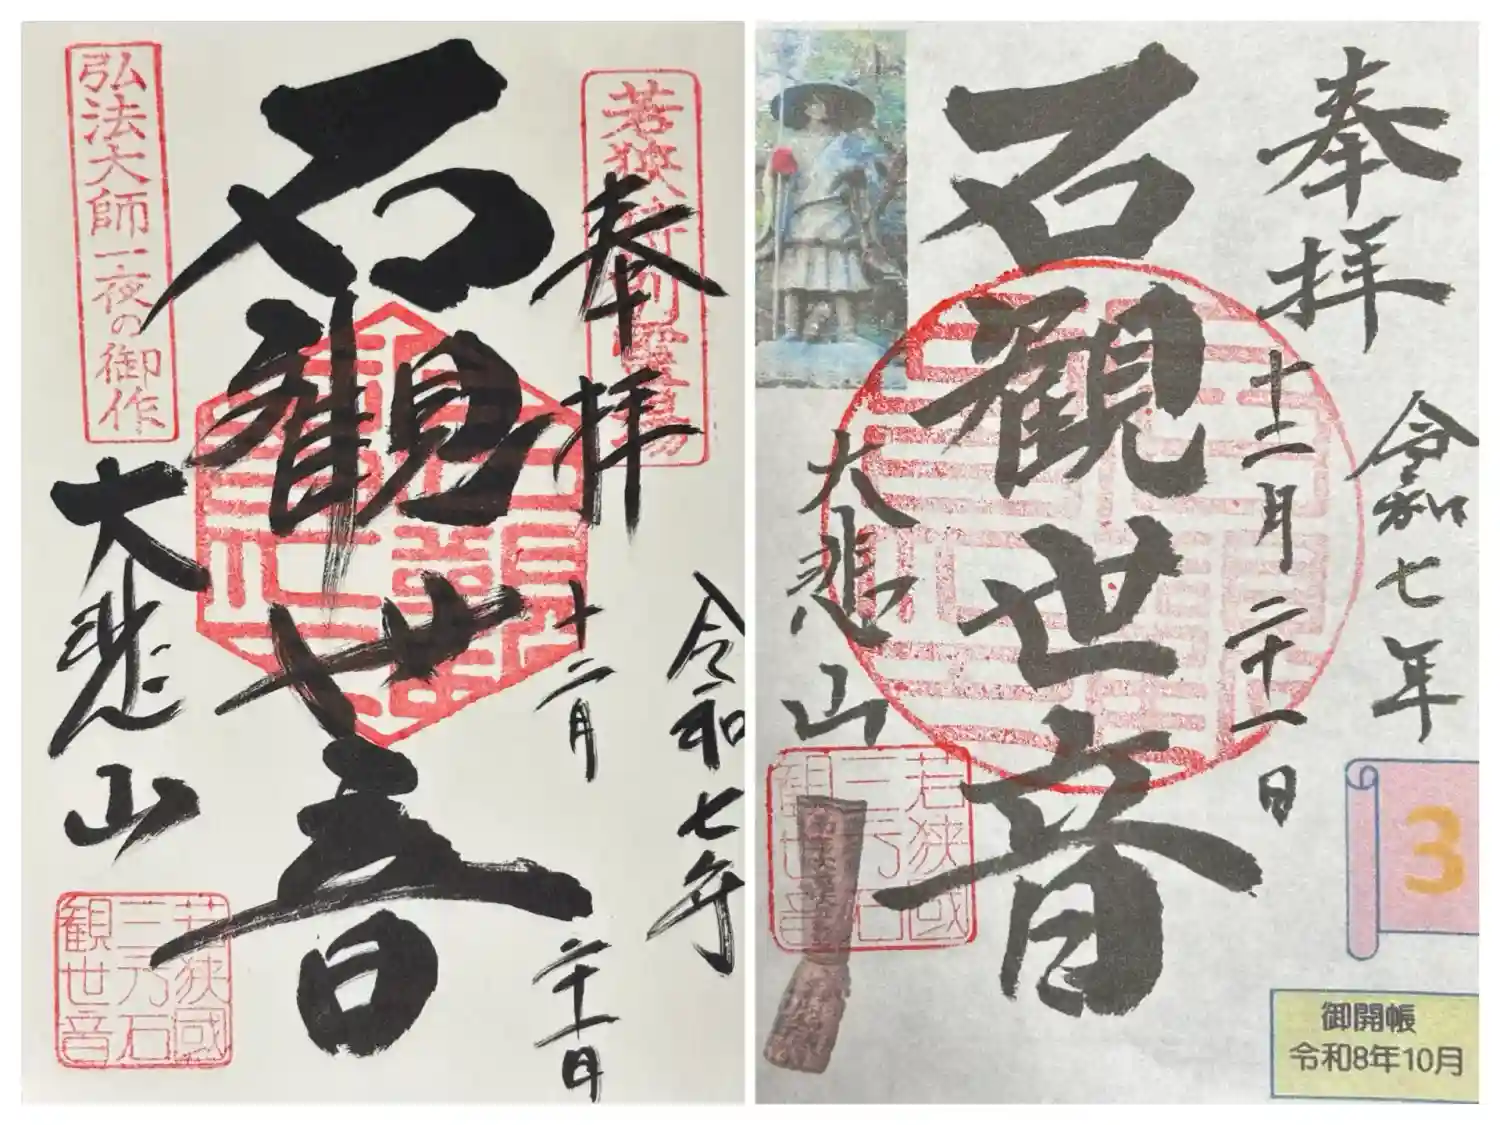 弘法大師一夜の御作
若狹特別靈場
奉拝
石観世音
大悲山
令和七年
十二月
二十一日
若狹國
三方石
観世音
奉拝
令和七年
十二月二十一日
石観世音
大悲山
若狹國
三方石
観世音
3
御開帳
令和8年10月